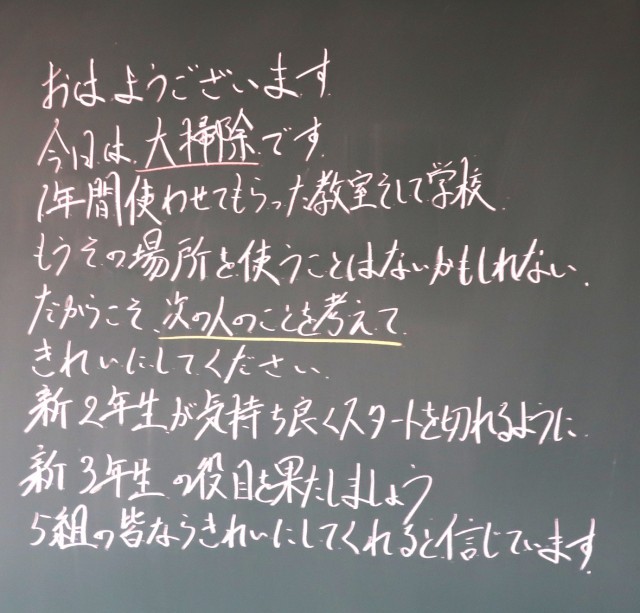 おはようございます
今日は、大掃除です
1年間使わせてもらった教室そして学校
もうその場所を使うことはないかもしれない。
だからこそ、次の人のことを考えて
きれいにしてください。
新2年生が気持ち良くスタートを切れるように
新3年生の役目を果たしましょう
5組の皆ならきれいにしてくれると信じています